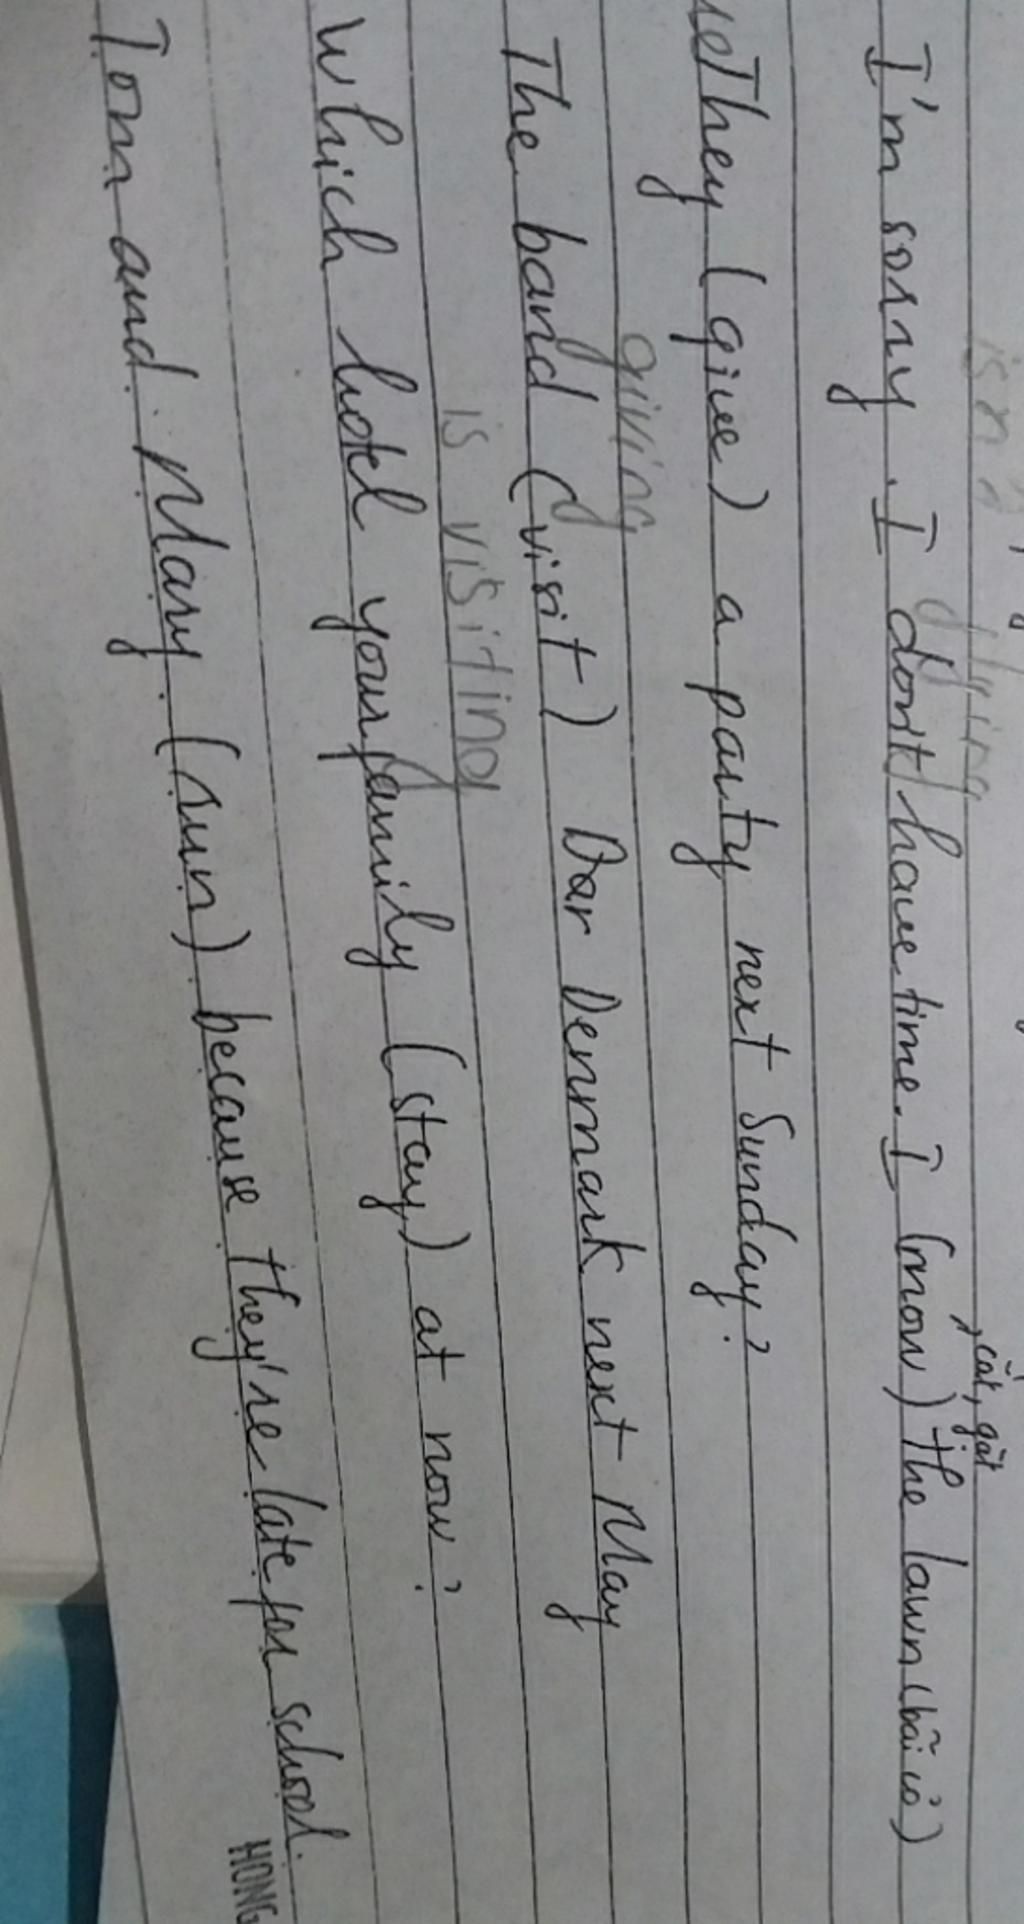 I'm sorry. I don't have time. I (mow) the lawn (bãi cỏ)
cắt, gặt
They (give) a party next Sunday?
giving
The band (visit) Dar Denmark next May
is visiting
Which hotel your family (stay) at now?
Tom and Mary (run) because they're late for school.
HONG